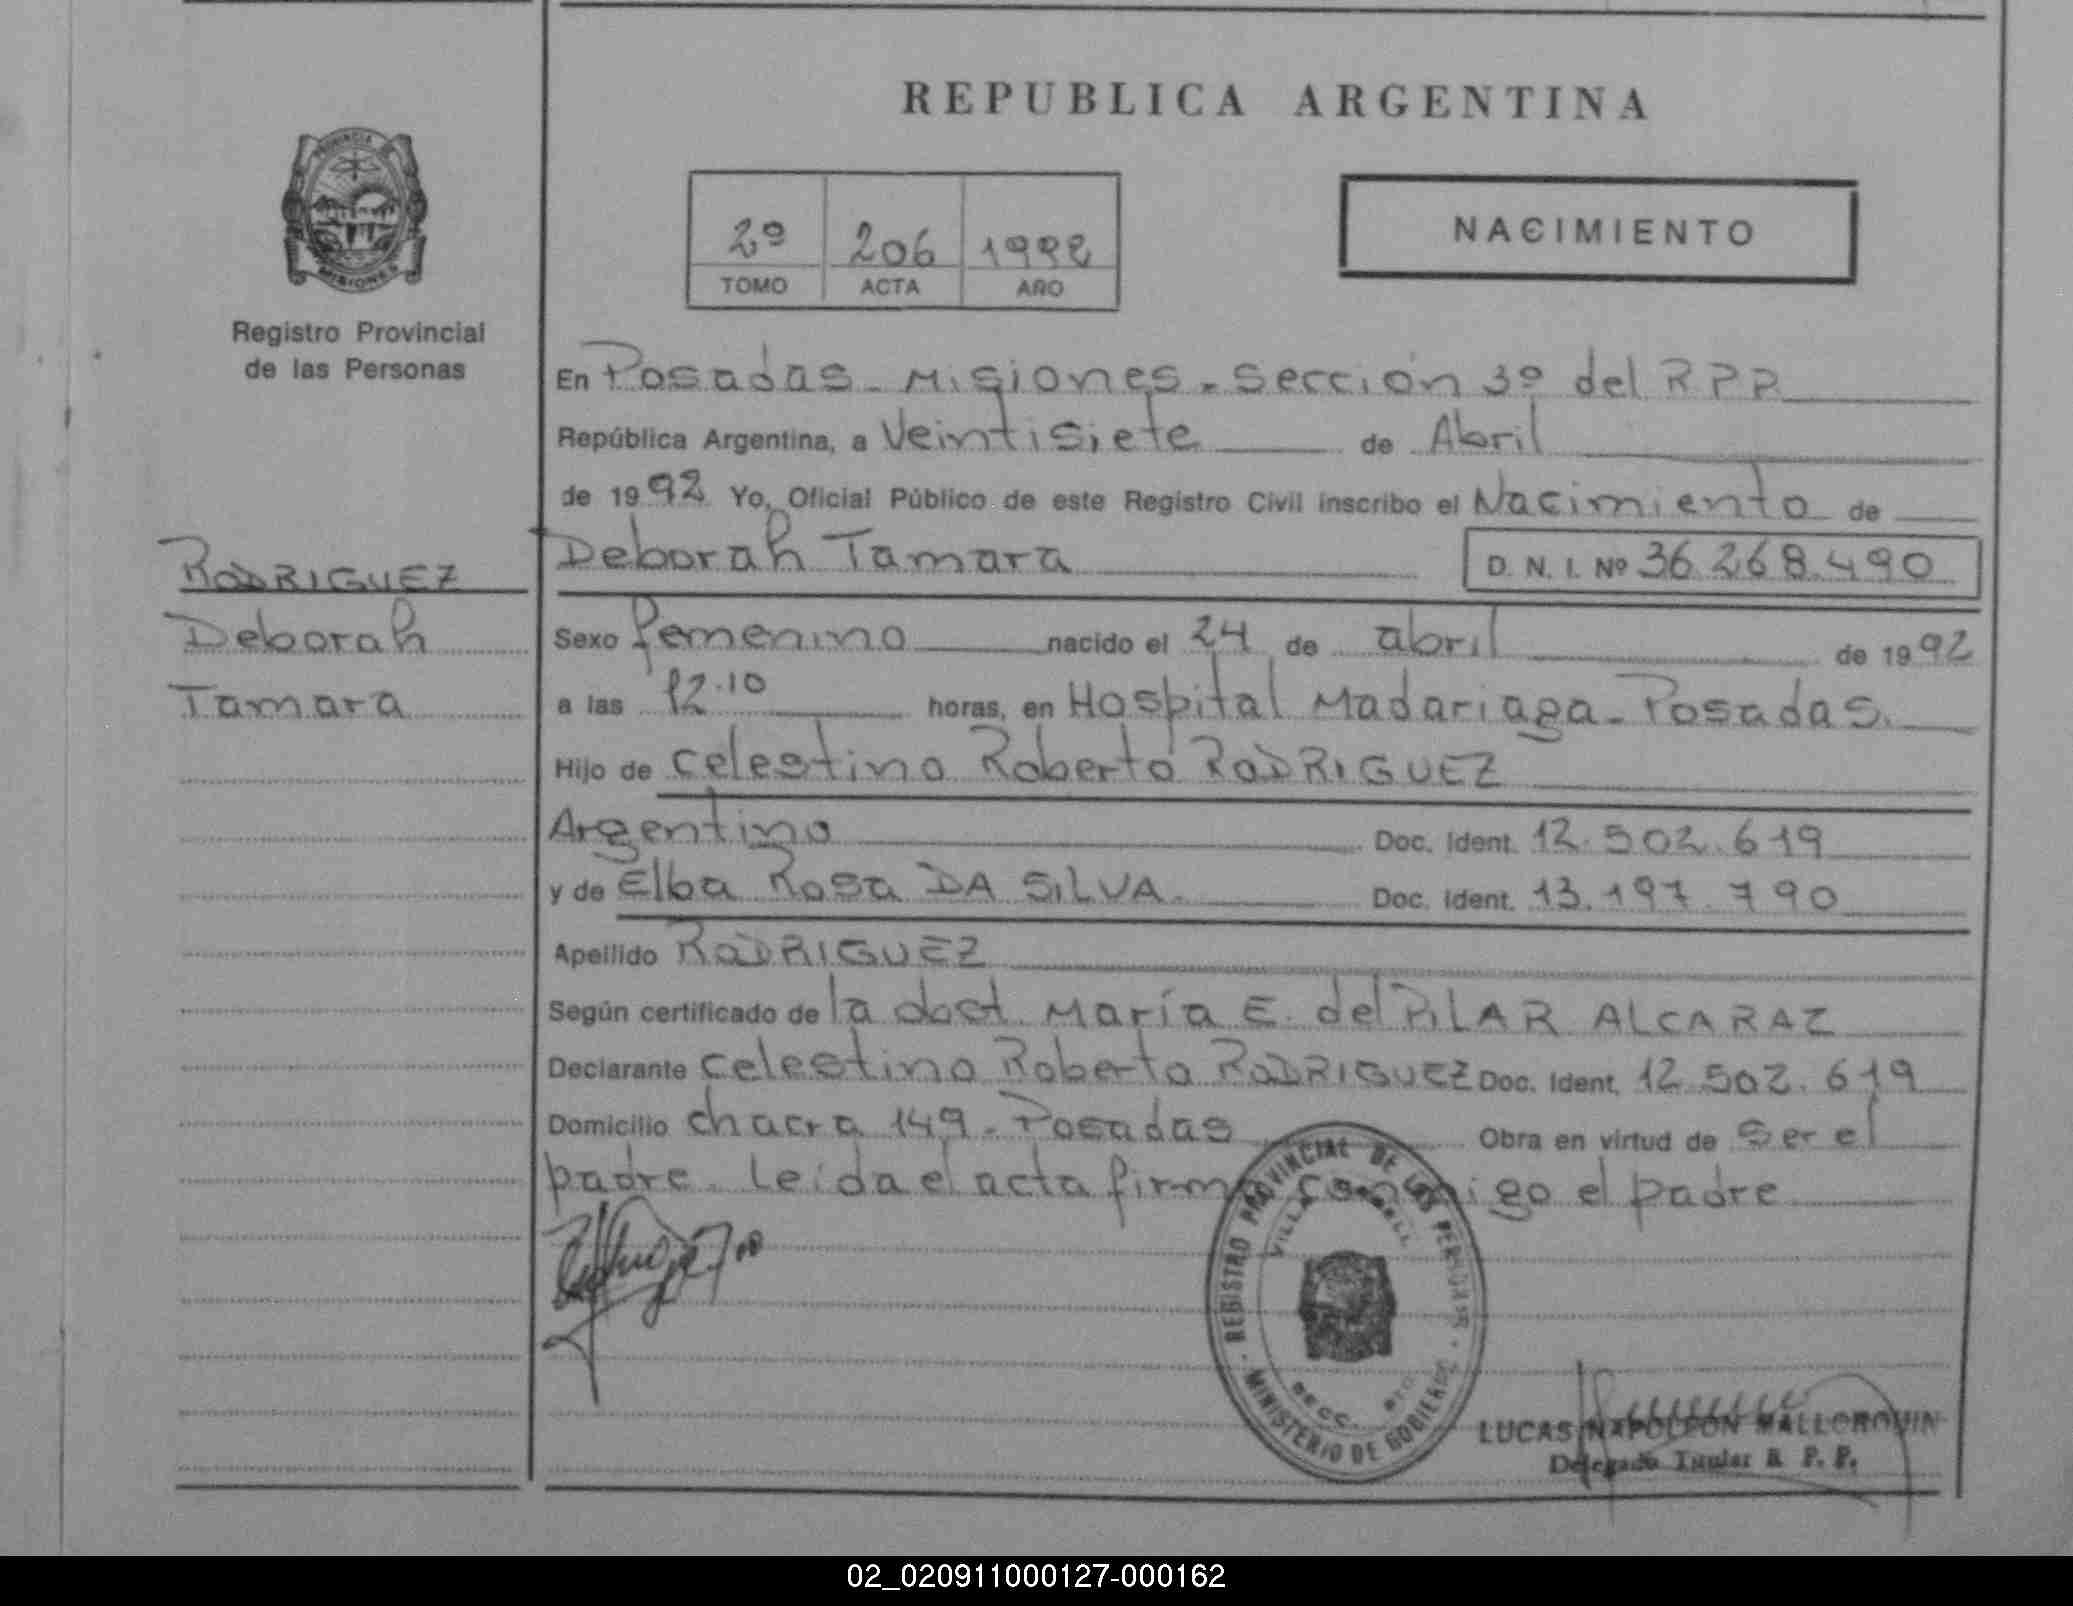 REPUBLICA ARGENTINA
PROVINCIA
MISIONES
Registro Provincial
de las Personas
2º 206 1992
TOMO ACTA AÑO
NACIMIENTO
En Posadas - Misiones - Sección 3º del R P P
República Argentina, a Veintisiete de Abril
de 1992 Yo, Oficial Público de este Registro Civil inscribo el Nacimiento de
Deborah Tamara D. N. I. Nº 36.268.490
RODRIGUEZ
Deborah
Tamara
Sexo femenino nacido el 24 de abril de 1992
a las 12.10 horas, en Hospital Madariaga - Posadas.
Hijo de Celestino Roberto RODRIGUEZ
Argentino Doc. Ident. 12.502.619
y de Elba Rosa DA SILVA. Doc. Ident. 13.197.790
Apellido RODRIGUEZ
Según certificado de la doct. María E. del PILAR ALCARAZ
Declarante Celestino Roberto RODRIGUEZ Doc. Ident. 12.502.619
Domicilio chacra 149 - Posadas Obra en virtud de ser el
padre. Leída el acta firma conmigo el padre
REGISTRO PROVINCIAL DE LAS PERSONAS
VILLA
SECC.
MINISTERIO DE GOBIERNO
LUCAS NAPOLEON MALLORQUIN
Delegado Titular R. P. P.
02_020911000127-000162